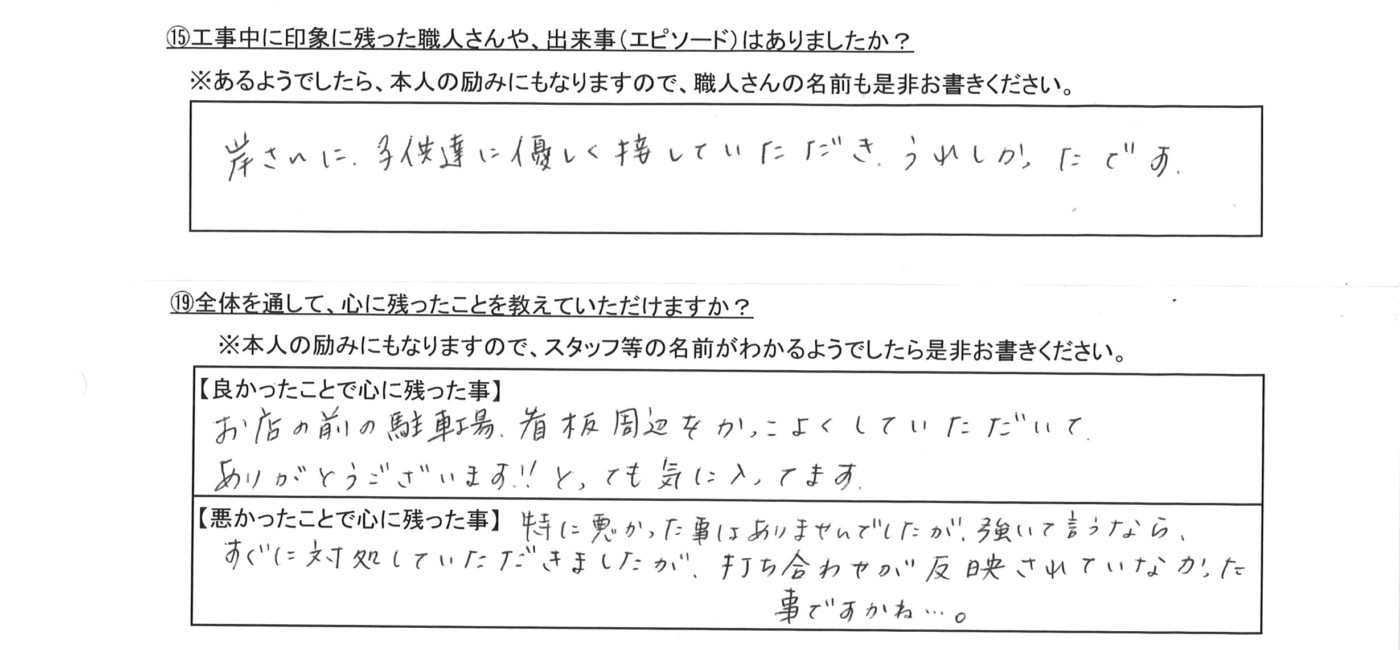 ⑮工事中に印象に残った職人さんや、出来事(エピソード)はありましたか？
※あるようでしたら、本人の励みにもなりますので、職人さんの名前も是非お書きください。
岸さんに、子供達に優しく接していただき、うれしかったです。
⑲全体を通して、心に残ったことを教えていただけますか？
※本人の励みにもなりますので、スタッフ等の名前がわかるようでしたら是非お書きください。
【良かったことで心に残った事】
お店の前の駐車場、看板周辺をかっこよくしていただいて、
ありがとうございます!!とっても気に入ってます。
【悪かったことで心に残った事】 特に悪かった事はありませんでしたが、強いて言うなら、
すぐに対処していただきましたが、打ち合わせが反映されていなかった
事ですかね…。